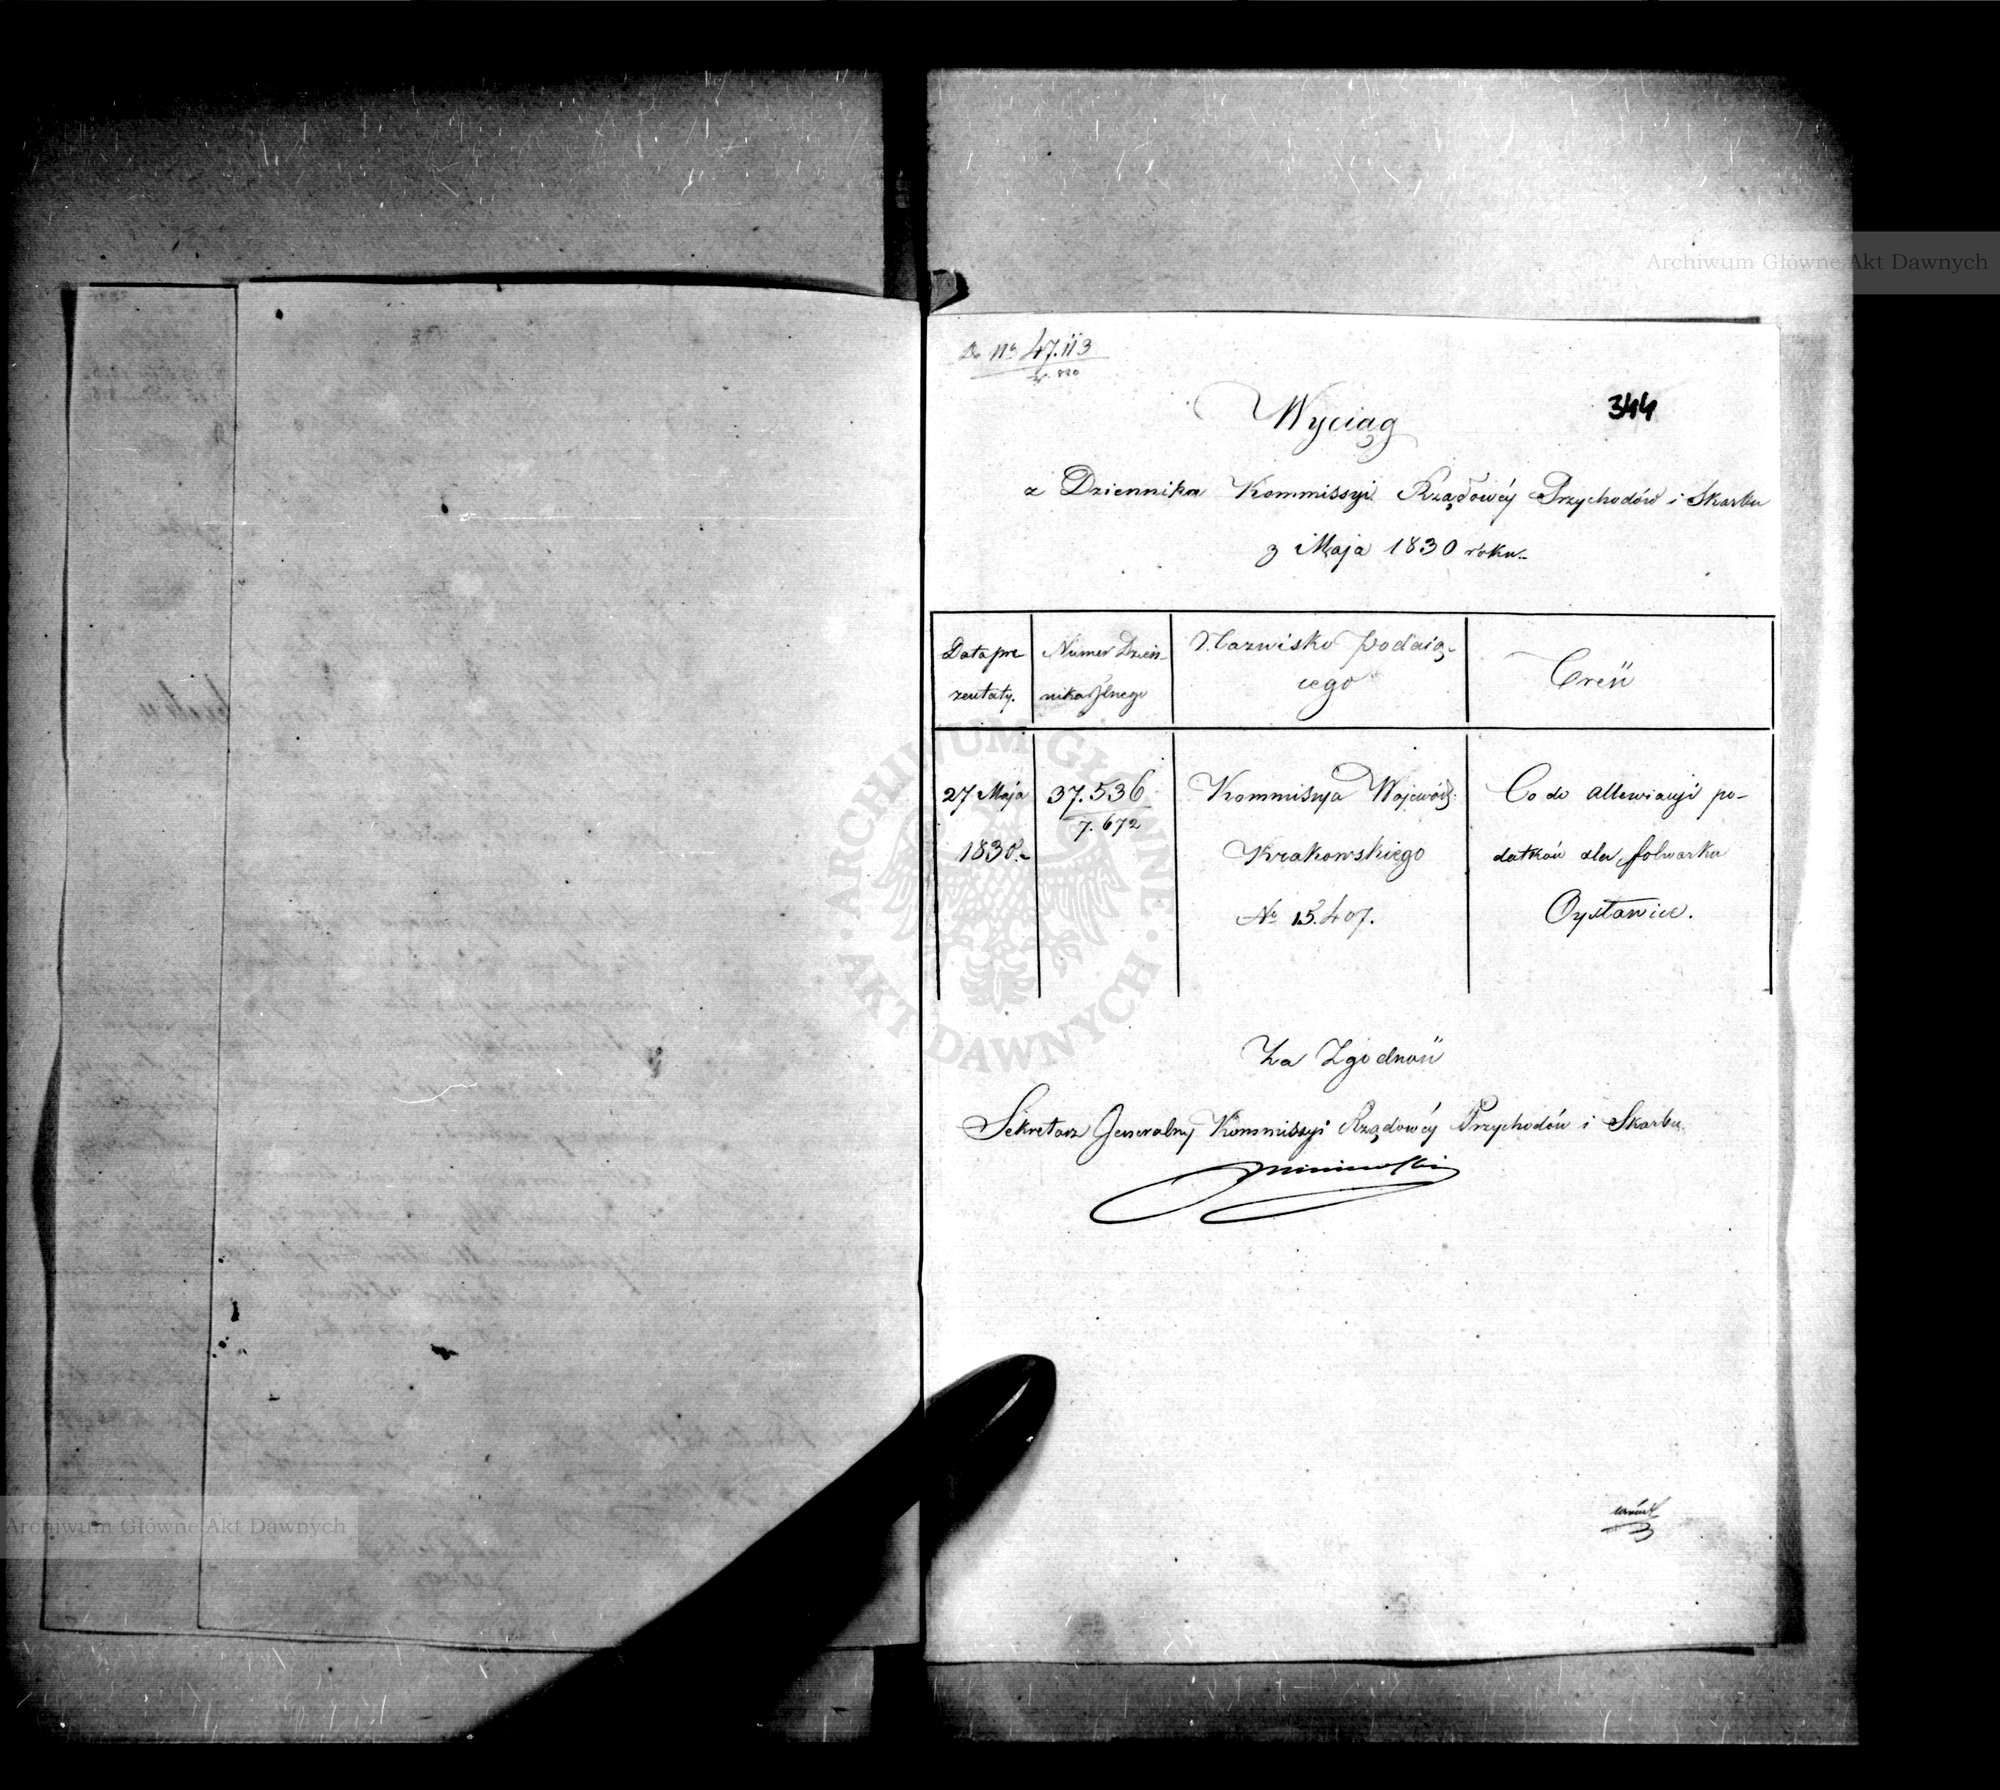 Do No 47.113
344
Wyciąg
z Dziennika Kommissyi Rządowéy Przychodów i Skarbu
z Maja 1830 roku
Data pre
zentaty.
Numer Dzien-
nika Głnego
Nazwisko podaią-
cego
Treść
27 Maja
1830.
37.536
7.672
Kommissya Wojewódz:
Krakowskiego
No 15.407.
Co do allewiacyi po-
datków dla folwarku
Za Zgodność
Sekretarz Generalny Kommissyi Rządowéy Przychodów i Skarbu
Archiwum Główne Akt Dawnych
ARCHIWUM GŁÓWNE · AKT DAWNYCH ·
Archiwum Główne Akt Dawnych